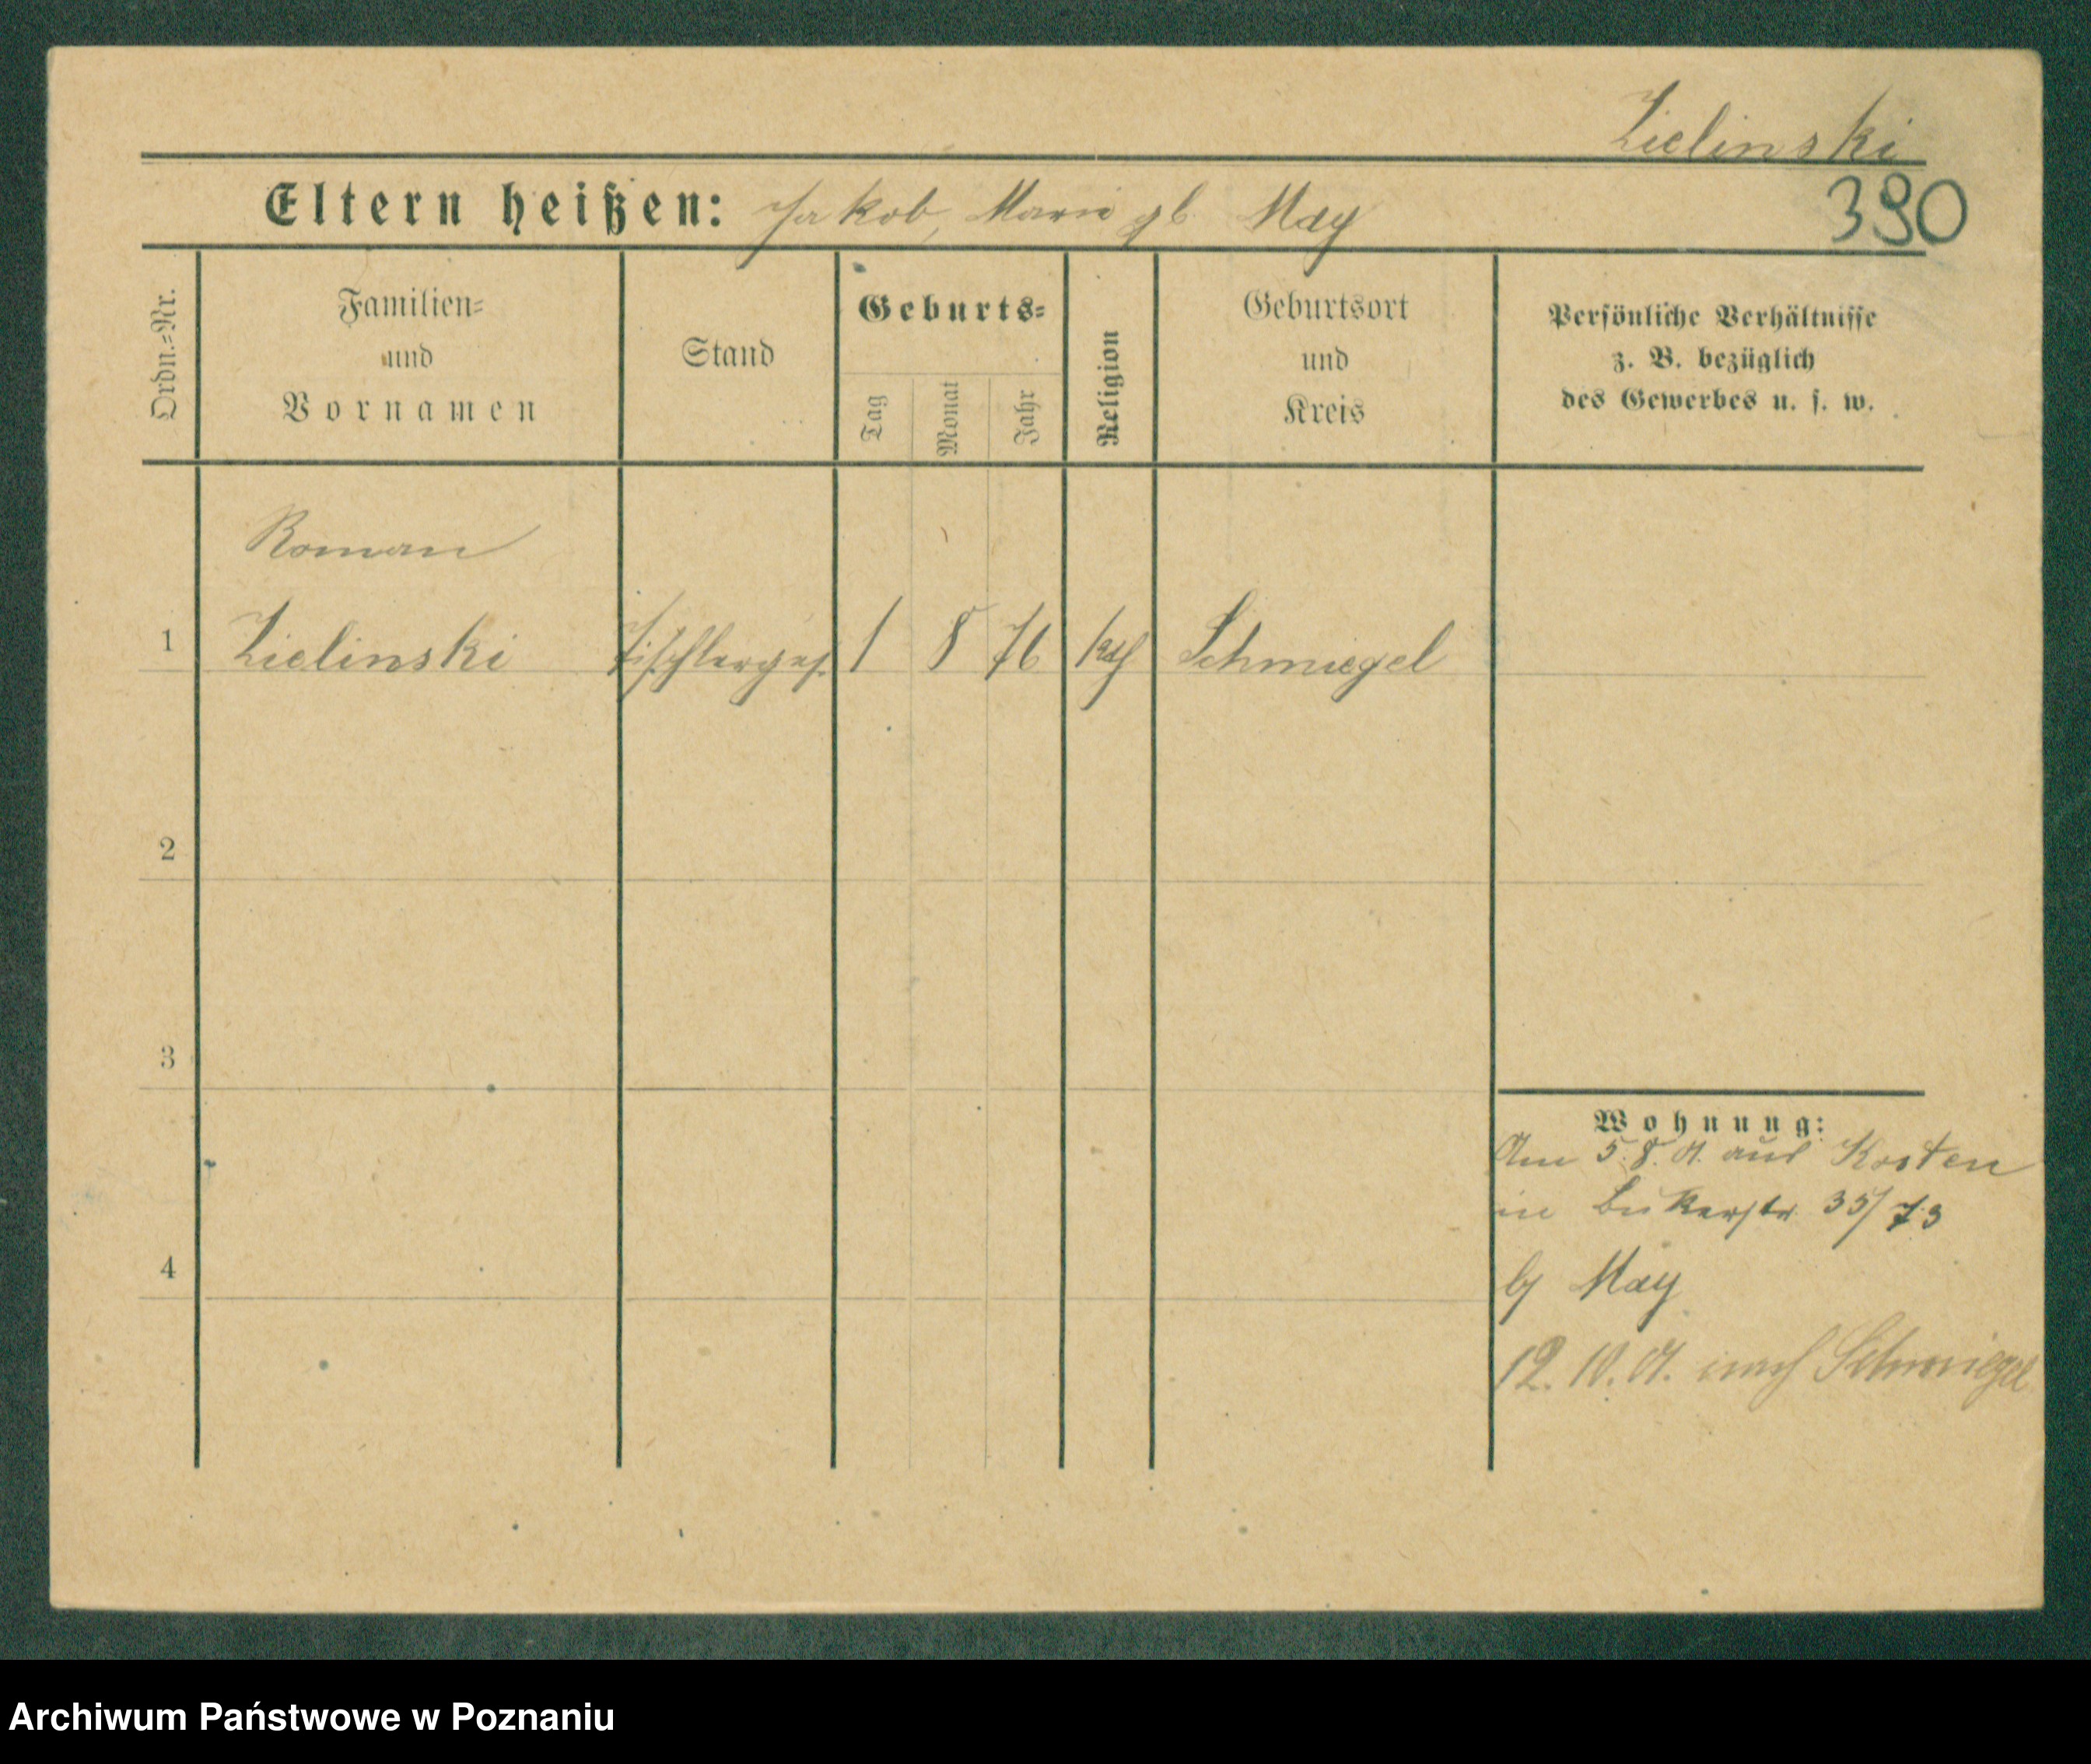 Zielinski
390
Eltern heißen: Jakob, Marie gb. May
Ordn.-Nr.
Familien-
und
Vornamen
Stand
Geburts-
Tag
Monat
Jahr
Religion
Geburtsort
und
Kreis
Persönliche Verhältnisse
z. B. bezüglich
des Gewerbes u. s. w.
Roman
1 Zielinski Tischlerges. 1 8 76 kath Schmiegel
2
3
4
Wohnung:
Am 5.8.01. aus Kosten
in Bukerstr. 35/73
bei May
12.10.01. nach Schmiegel
Archiwum Państwowe w Poznaniu